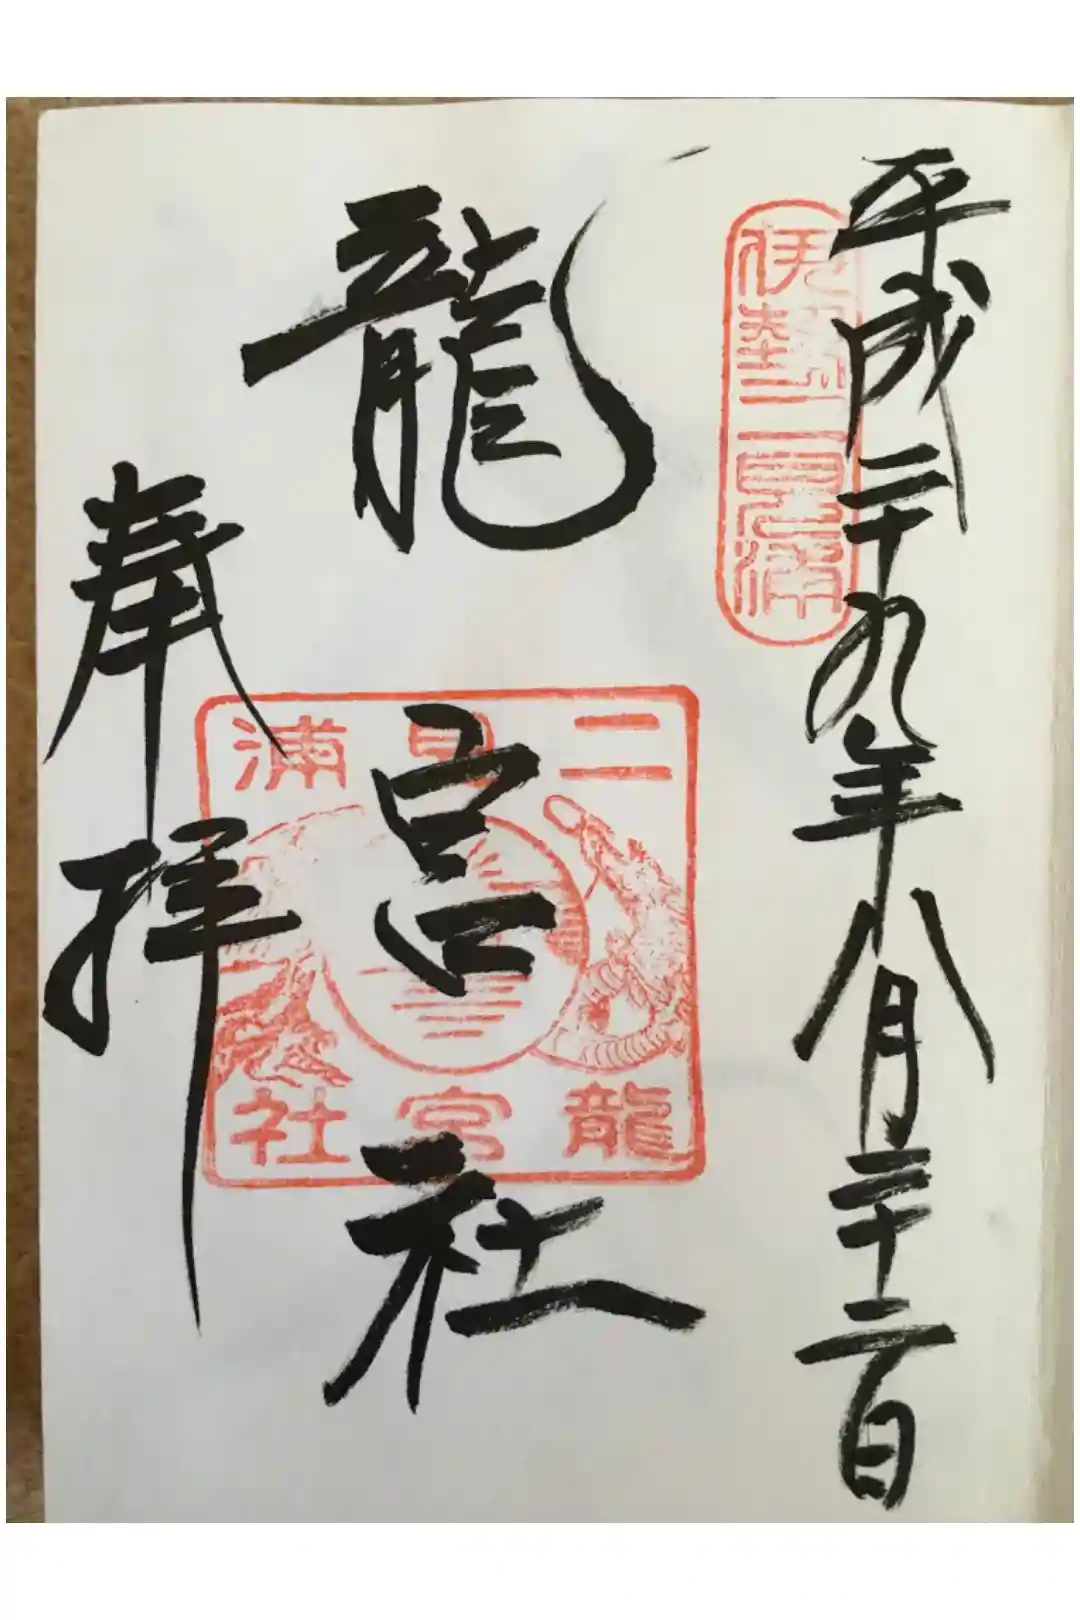 平成二十九年八月二十二日
伊勢二見浦
龍宮社
奉拝
二見浦
龍宮社